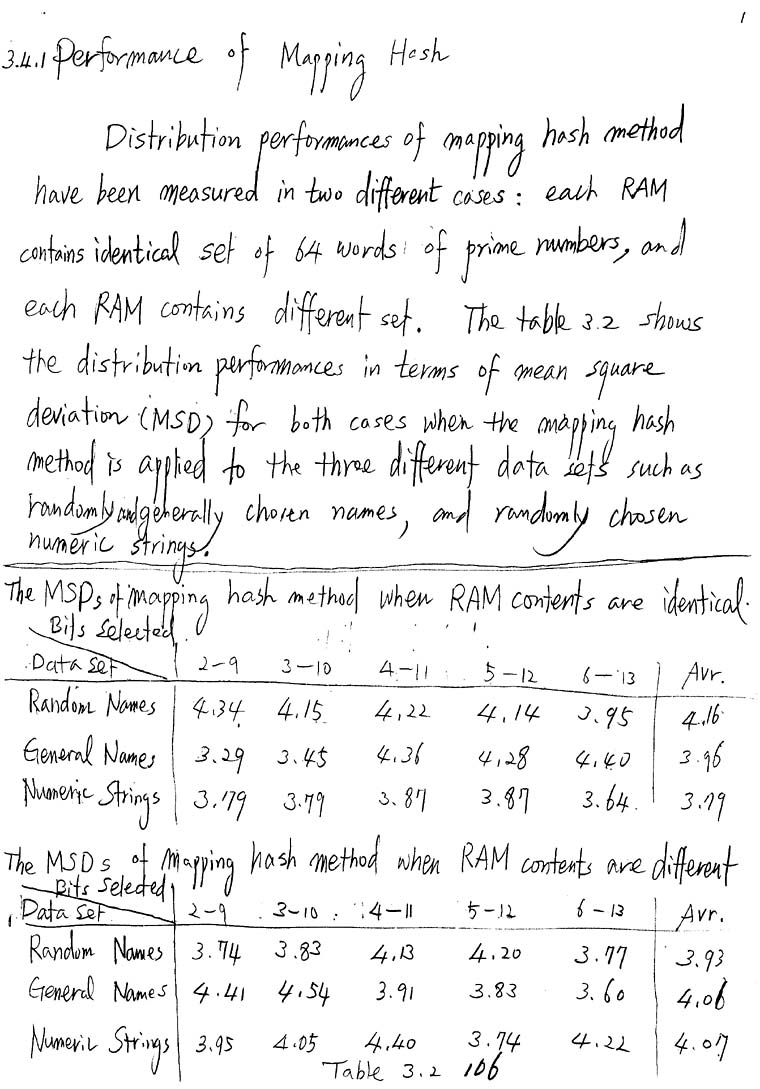 1
3.4.1 Performance of Mapping Hash
Distribution performances of mapping hash method
have been measured in two different cases: each RAM
contains identical set of 64 words of prime numbers, and
each RAM contains different set. The table 3.2 shows
the distribution performances in terms of mean square
deviation (MSD) for both cases when the mapping hash
method is applied to the three different data sets such as
randomly and generally chosen names, and randomly chosen
numeric strings.
The MSDs of mapping hash method when RAM contents are identical.
Bits Selected
Data set 2-9 3-10 4-11 5-12 6-13 Avr.
Random Names 4.34 4.15 4.22 4.14 3.95 4.16
General Names 3.29 3.45 4.36 4.28 4.40 3.96
Numeric Strings 3.79 3.79 3.87 3.87 3.64 3.79
The MSDs of mapping hash method when RAM contents are different
Bits Selected
Data set 2-9 3-10 4-11 5-12 6-13 Avr.
Random Names 3.74 3.83 4.13 4.20 3.77 3.93
General Names 4.41 4.54 3.91 3.83 3.60 4.06
Numeric Strings 3.95 4.05 4.40 3.74 4.22 4.07
Table 3.2 106